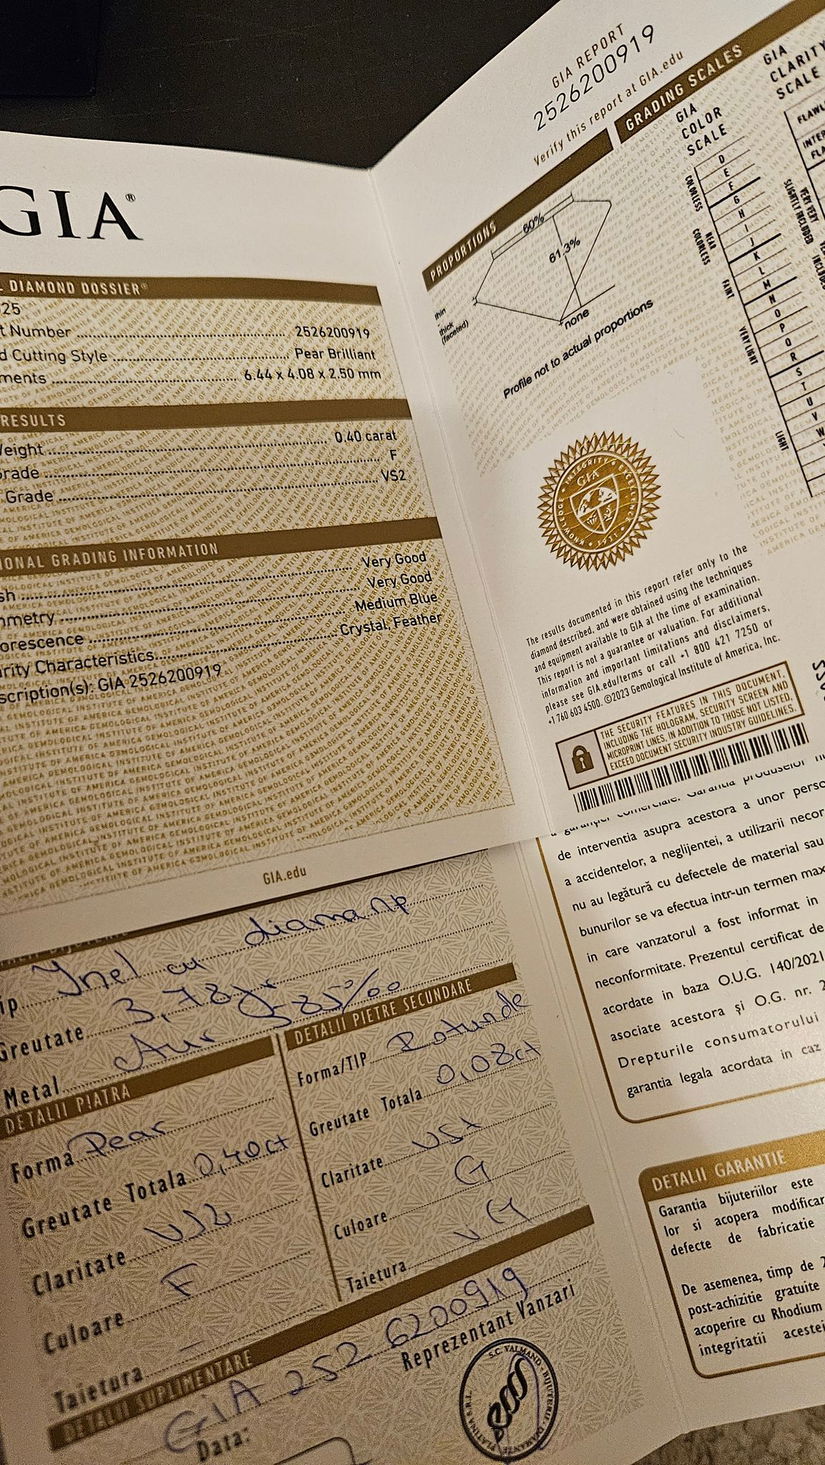 GIA®
DIAMOND DOSSIER®
25
Number 2526200919
Cutting Style Pear Brilliant
6.44 x 4.08 x 2.50 mm
RESULTS
Weight 0.40 carat
Grade F
Grade VS2
ONAL GRADING INFORMATION
Very Good
Very Good
Medium Blue
Characteristics Crystal, Feather
GIA 2526200919
GIA.edu
GIA REPORT
2526200919
Verify this report at GIA.edu
PROPORTIONS
60%
61.3%
thin
thick
(faceted)
none
Profile not to actual proportions
GRADING SCALES
GIA
COLOR
SCALE
COLORLESS
D
E
F
NEAR COLORLESS
G
H
I
J
FAINT
K
L
M
VERY LIGHT
N
O
P
Q
R
LIGHT
S
T
U
V
W
GIA
CLARITY
SCALE
GIA
The results documented in this report refer only to the
diamond described, and were obtained using the techniques
and equipment available to GIA at the time of examination.
This report is not a guarantee or valuation. For additional
information and important limitations and disclaimers,
please see GIA.edu/terms or call +1 800 421 7250 or
+1 760 603 4500. ©2023 Gemological Institute of America, Inc.
THE SECURITY FEATURES IN THIS DOCUMENT,
INCLUDING THE HOLOGRAM, SECURITY SCREEN AND
MICROPRINT LINES, IN ADDITION TO THOSE NOT LISTED,
EXCEED DOCUMENT SECURITY INDUSTRY GUIDELINES.
Inel cu diamant
Greutate 3,78gr
Metal Aur 585‰
DETALII PIATRA
Forma Pear
Greutate Totala 0,40ct
Claritate VS2
Culoare F
Taietura –
DETALII PIETRE SECUNDARE
Forma/TIP Rotunde
Greutate Totala 0,08ct
Claritate VS1
Culoare G
Taietura VG
DETALII SUPLIMENTARE
GIA 2526200919
Data:
Reprezentant Vanzari
S.C. VALMAND
de interventia asupra acestora a unor
a accidentelor, a neglijentei, a utilizarii
nu au legătură cu defectele de material sau
bunurilor se va efectua intr-un termen
in care vanzatorul a fost informat in
neconformitate. Prezentul certificat de
acordate in baza O.U.G. 140/2021
asociate acestora și O.G. nr. 2
Drepturile consumatorului
garantia legala acordata in caz
DETALII GARANTIE
Garantia bijuteriilor este
lor si acopera
defecte de fabricatie
De asemenea, timp de 2
post-achizitie gratuite
acoperire cu Rhodium
integritatii